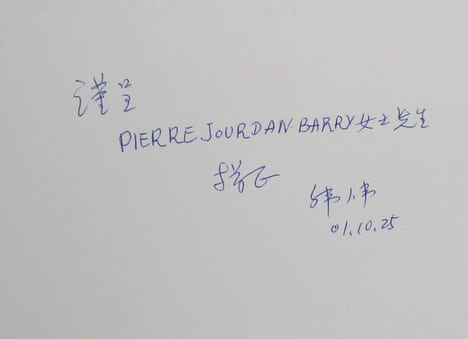 谨呈
PIERRE JOURDAN·BARRY女士先生
指正
01.10.25.